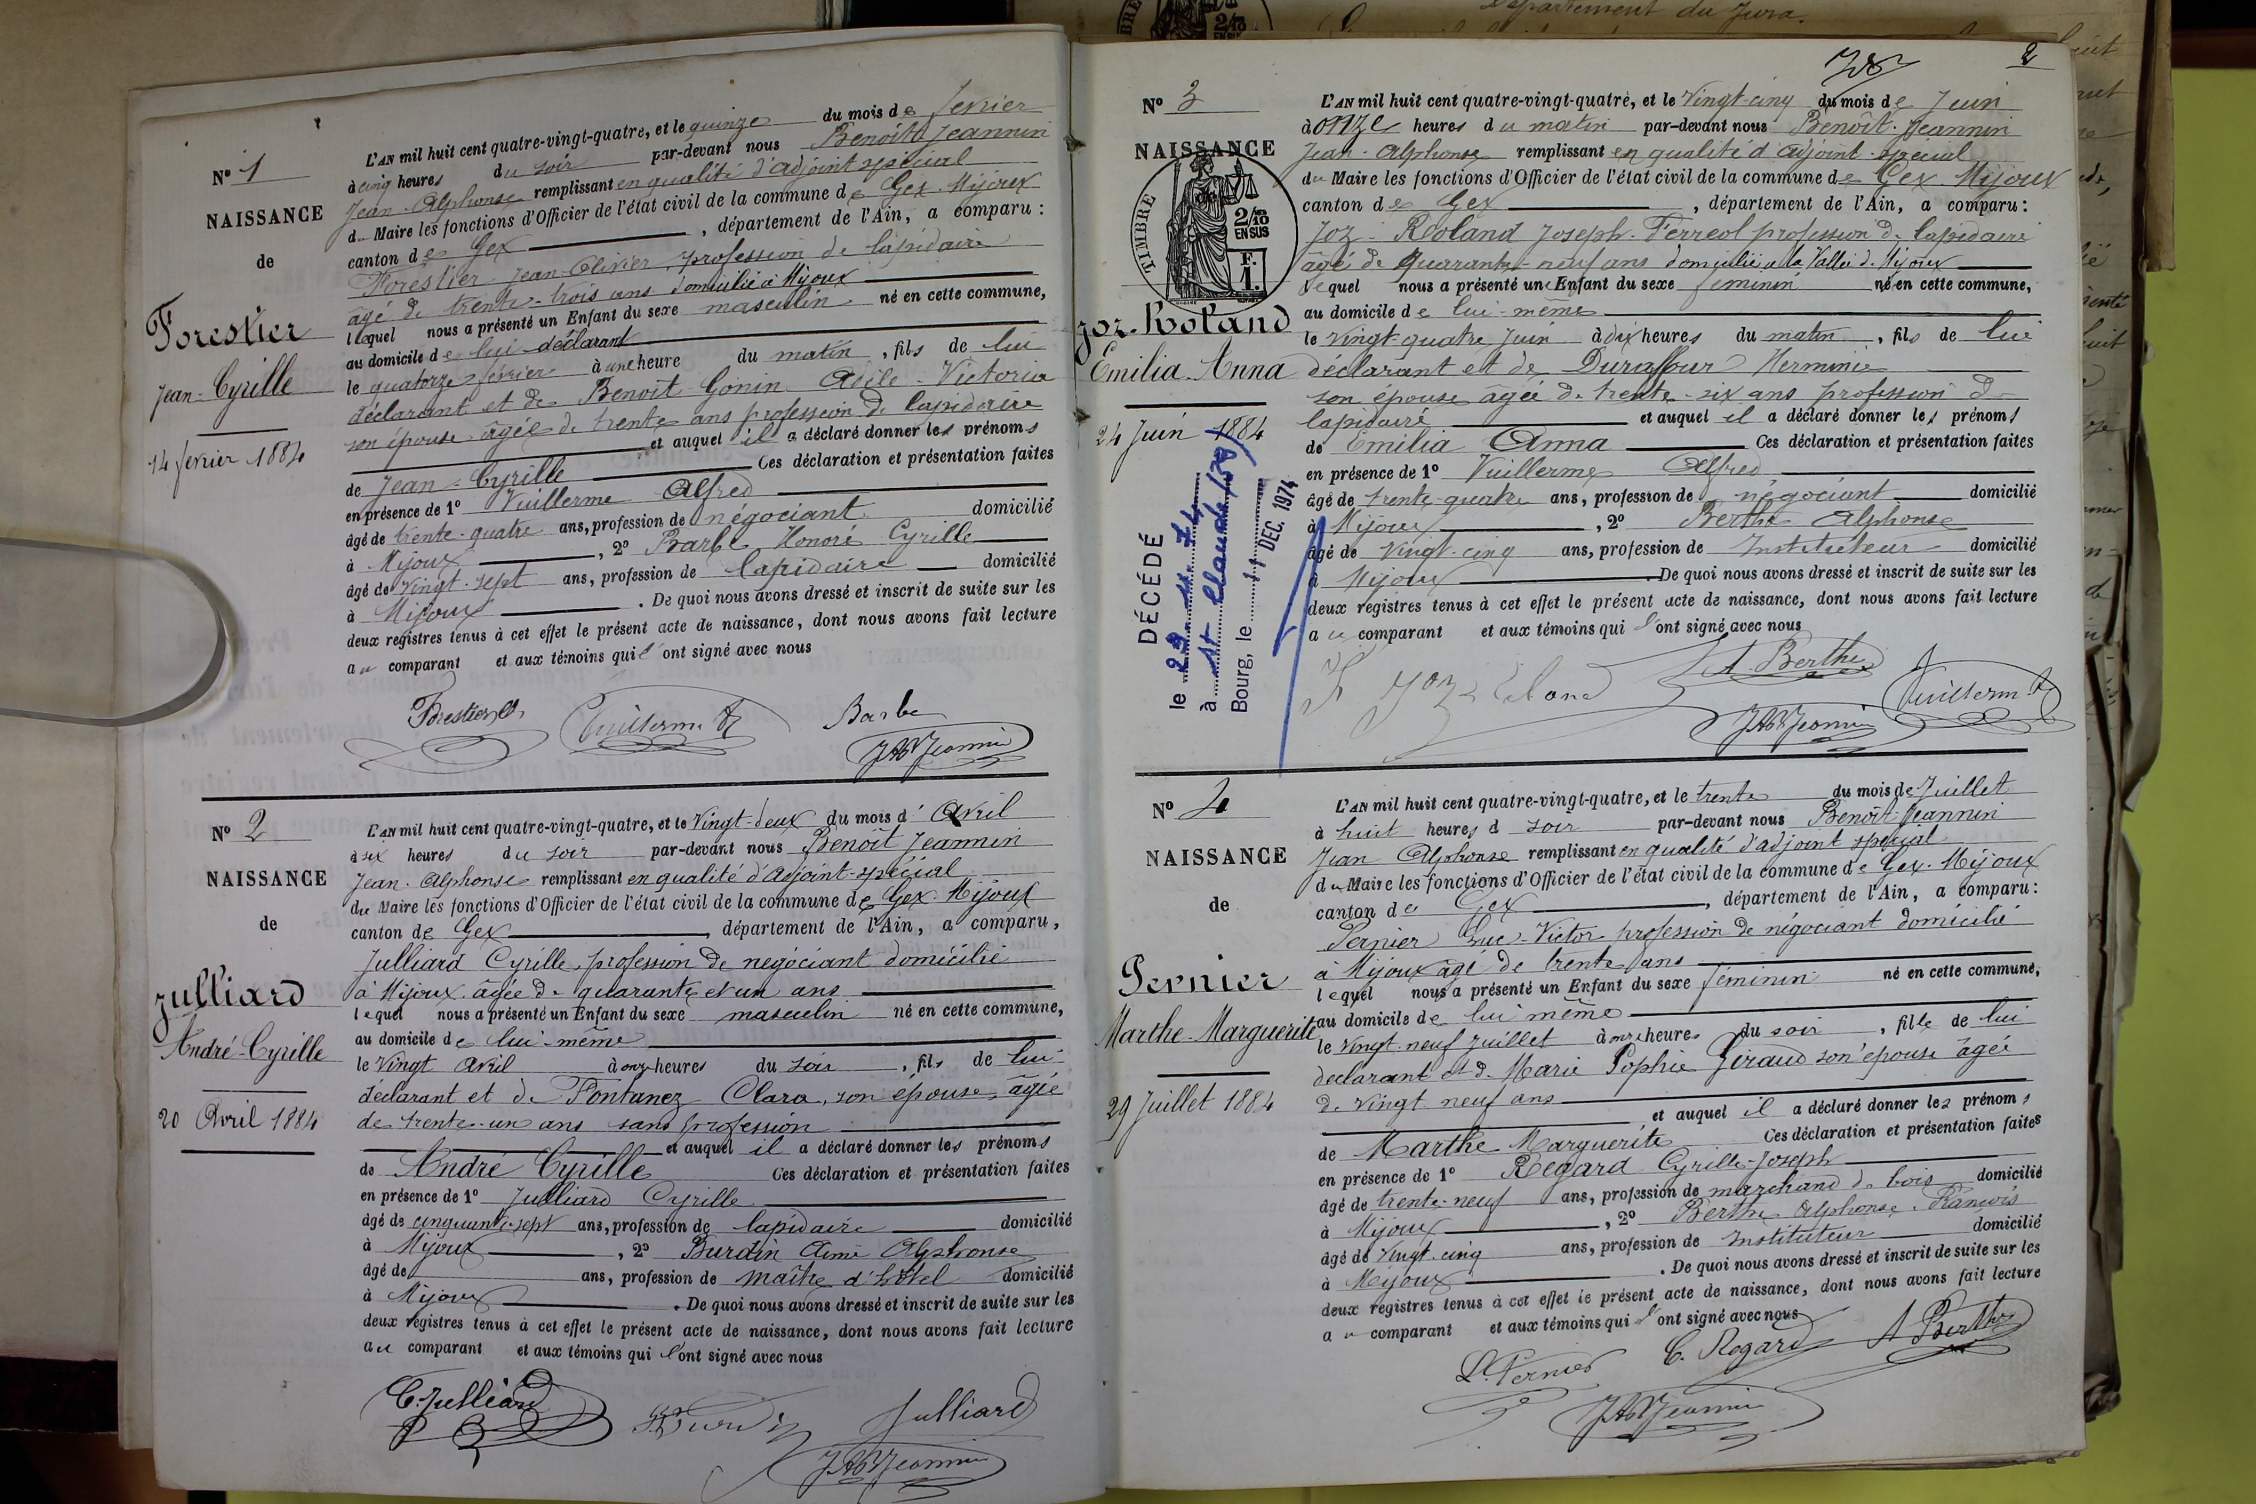 Département du Jura.
N° 1
NAISSANCE
de
Forestier
Jean-Cyrille
14 février 1884
L'AN mil huit cent quatre-vingt-quatre, et le quinze du mois de février
à cinq heures du soir par-devant nous Benoît Jeannin
Jean-Alphonse remplissant en qualité d'adjoint spécial
du Maire les fonctions d'Officier de l'état civil de la commune de Gex-Mijoux
canton de Gex, département de l'Ain, a comparu :
Forestier Jean-Olivier, profession de lapidaire
âgé de trente-trois ans domicilié à Mijoux
lequel nous a présenté un Enfant du sexe masculin né en cette commune,
au domicile de lui déclarant
le quatorze février à une heure du matin, fils de lui
déclarant et de Benoît-Gonin Adèle-Victoria
son épouse âgée de trente ans profession de lapidaire
et auquel il a déclaré donner les prénoms
de Jean-Cyrille Ces déclaration et présentation faites
en présence de 1° Vuillerme Alfred
âgé de trente-quatre ans, profession de négociant domicilié
à Mijoux, 2° Barbe Honoré Cyrille
âgé de vingt-sept ans, profession de lapidaire domicilié
à Mijoux. De quoi nous avons dressé et inscrit de suite sur les
deux registres tenus à cet effet le présent acte de naissance, dont nous avons fait lecture
au comparant et aux témoins qui l'ont signé avec nous
Forestier Vuillerme A Barbe
JABJeannin
N° 2
NAISSANCE
de
Julliard
André-Cyrille
20 Avril 1884
L'AN mil huit cent quatre-vingt-quatre, et le Vingt-deux du mois d'Avril
à six heures du soir par-devant nous Benoît Jeannin
Jean-Alphonse remplissant en qualité d'adjoint-spécial
du Maire les fonctions d'Officier de l'état civil de la commune de Gex-Mijoux
canton de Gex, département de l'Ain, a comparu,
Julliard Cyrille, profession de négociant domicilié
à Mijoux âgée de quarante et un ans
lequel nous a présenté un Enfant du sexe masculin né en cette commune,
au domicile de lui-même
le Vingt Avril à onze heures du soir, fils de lui
déclarant et de Fontanez Clara, son épouse, âgée
de trente-un ans sans profession
et auquel il a déclaré donner les prénoms
de André Cyrille Ces déclaration et présentation faites
en présence de 1° Julliard Cyrille
âgé de cinquante-sept ans, profession de lapidaire domicilié
à Mijoux, 2° Burdin Aimé Alphonse
âgé de ans, profession de maître d'hôtel domicilié
à Mijoux. De quoi nous avons dressé et inscrit de suite sur les
deux registres tenus à cet effet le présent acte de naissance, dont nous avons fait lecture
au comparant et aux témoins qui l'ont signé avec nous
C. Julliard Burdin Julliard
JABJeannin
2
N° 3
NAISSANCE
de
TIMBRE
2/10
EN SUS
F.
1.
Joz-Roland
Emilia-Anna
24 Juin 1884
DÉCÉDÉ
le 29.11.74
à St Claude (39)
Bourg, le 11 DEC. 1974
L'AN mil huit cent quatre-vingt-quatre, et le Vingt-cinq du mois de Juin
à onze heures du matin par-devant nous Benoît-Jeannin
Jean-Alphonse remplissant en qualité d'adjoint-spécial
du Maire les fonctions d'Officier de l'état civil de la commune de Gex-Mijoux
canton de Gex, département de l'Ain, a comparu :
Joz-Roland Joseph-Ferreol profession de lapidaire
âgé de quarante-neuf ans domicilié à la Vallée de Mijoux
lequel nous a présenté une Enfant du sexe féminin né en cette commune,
au domicile de lui-même
le vingt-quatre Juin à dix heures du matin, fils de lui
déclarant et de Duraffour Herminie
son épouse âgée de trente-six ans profession de
lapidaire et auquel il a déclaré donner les prénoms
de Emilia Anna Ces déclaration et présentation faites
en présence de 1° Vuillerme Alfred
âgé de trente-quatre ans, profession de négociant domicilié
à Mijoux, 2° Berthe Alphonse
âgé de vingt-cinq ans, profession de Instituteur domicilié
à Mijoux. De quoi nous avons dressé et inscrit de suite sur les
deux registres tenus à cet effet le présent acte de naissance, dont nous avons fait lecture
au comparant et aux témoins qui l'ont signé avec nous
Joz Roland A. Berthe
JABJeannin Vuillerme A
N° 4
NAISSANCE
de
Pernier
Marthe-Marguerite
29 Juillet 1884
L'AN mil huit cent quatre-vingt-quatre, et le trente du mois de Juillet
à huit heures d soir par-devant nous Benoît-Jeannin
Jean Alphonse remplissant en qualité d'adjoint spécial
du Maire les fonctions d'Officier de l'état civil de la commune de Gex-Mijoux
canton de Gex, département de l'Ain, a comparu :
Pernier Luc-Victor profession de négociant domicilié
à Mijoux âgé de trente ans
lequel nous a présenté un Enfant du sexe féminin né en cette commune,
au domicile de lui même
le vingt-neuf juillet à onze heures du soir, fille de lui
déclarant et de Marie Sophie Giraud son épouse âgée
de vingt neuf ans
et auquel il a déclaré donner les prénoms
de Marthe Marguerite Ces déclaration et présentation faites
en présence de 1° Regard Cyrille-Joseph
âgé de trente-neuf ans, profession de marchand de bois domicilié
à Mijoux, 2° Berthe Alphonse François
âgé de vingt-cinq ans, profession de Instituteur domicilié
à Mijoux. De quoi nous avons dressé et inscrit de suite sur les
deux registres tenus à cet effet le présent acte de naissance, dont nous avons fait lecture
au comparant et aux témoins qui l'ont signé avec nous
L. Pernier C. Regard A Berthe
JABJeannin